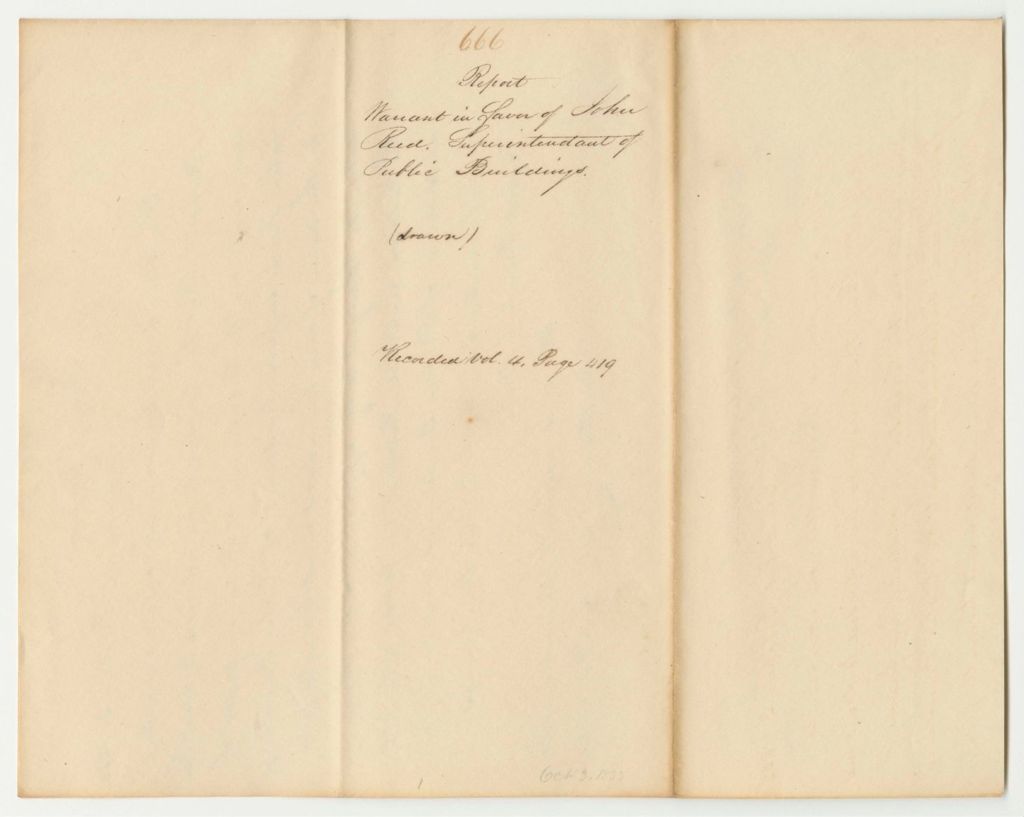 666
Report
Warrant in favor of John
Reed. Superintendant of
Public Buildings.
(drawn)
Recorded Vol. 4, Page 419
Oct 3.